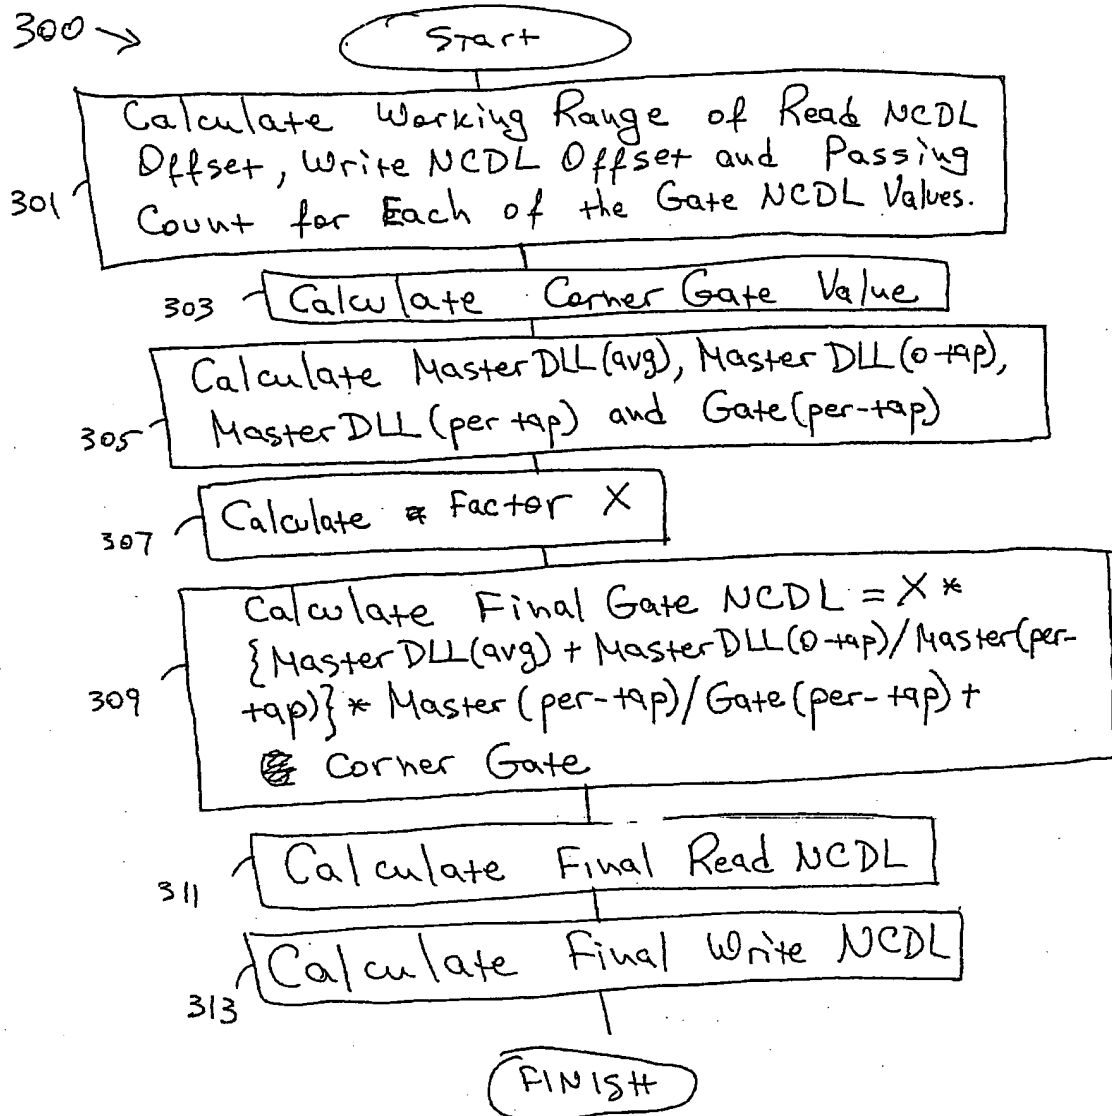 300
Start
Calculate Working Range of Read NCDL
Offset, Write NCDL Offset and Passing
Count for Each of the Gate NCDL Values.
301
Calculate Corner Gate Value
303
Calculate MasterDLL(avg), MasterDLL(0-tap),
MasterDLL(per tap) and Gate(per-tap)
305
Calculate Factor X
307
Calculate Final Gate NCDL = X *
{MasterDLL(avg) + MasterDLL(0-tap)/Master(per-
tap)} * Master(per-tap)/Gate(per-tap) +
Corner Gate
309
Calculate Final Read NCDL
311
Calculate Final Write NCDL
313
FINISH